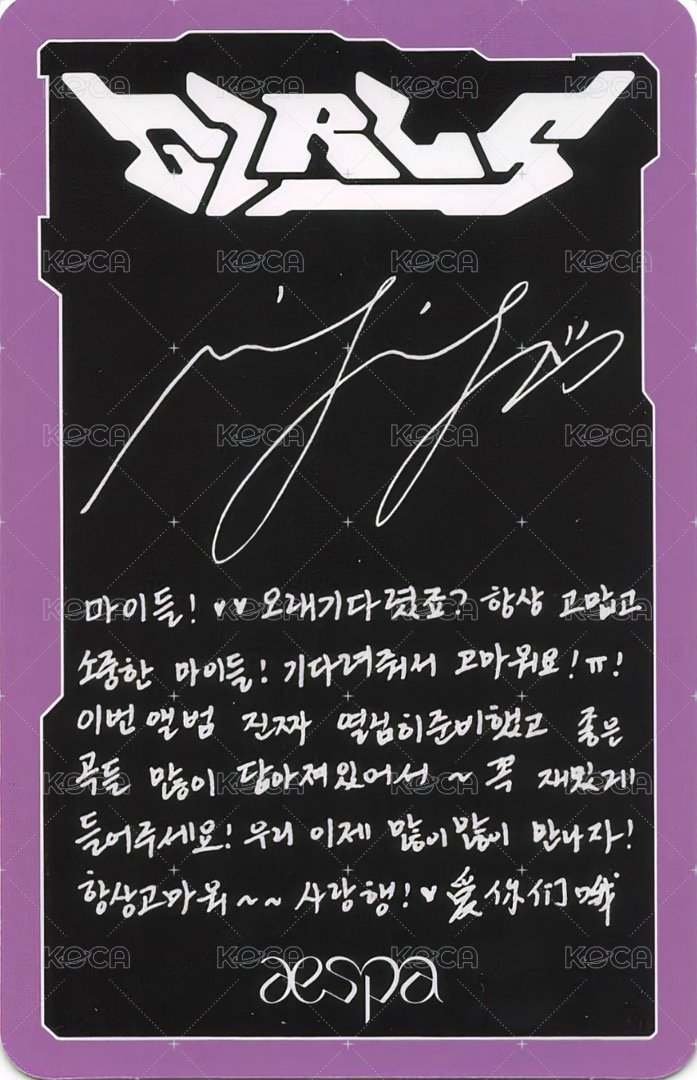 GIRLS
마이들! ♥♥ 오래기다렸죠? 항상 고맙고
소중한 마이들! 기다려줘서 고마워요!ㅠ!
이번 앨범 진짜 열심히준비했고 좋은
곡들 많이 담아져있어서 ~ 꼭 재밌게
들어주세요! 우리 이제 많이많이 만나자!
항상고마워~~ 사랑행!♥ 爱你们哦
aespa
KOCA